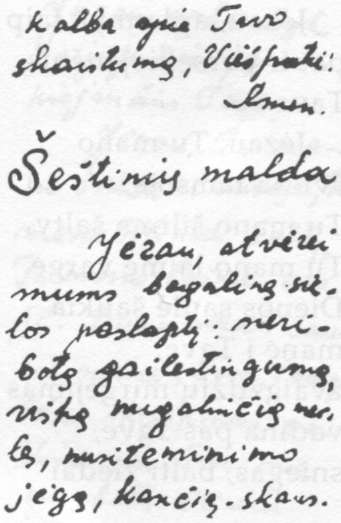 kalba apie Tavo
skaistumą, Viešpatie!
Amen.
Šeštinių malda
Jėzau, atvėrei
mums begalinę sie-
los paslaptį: neri-
botą gailestingumą,
viską nugalinčią mei-
lę, nusižeminimo
jėgą, kančią. skaus.